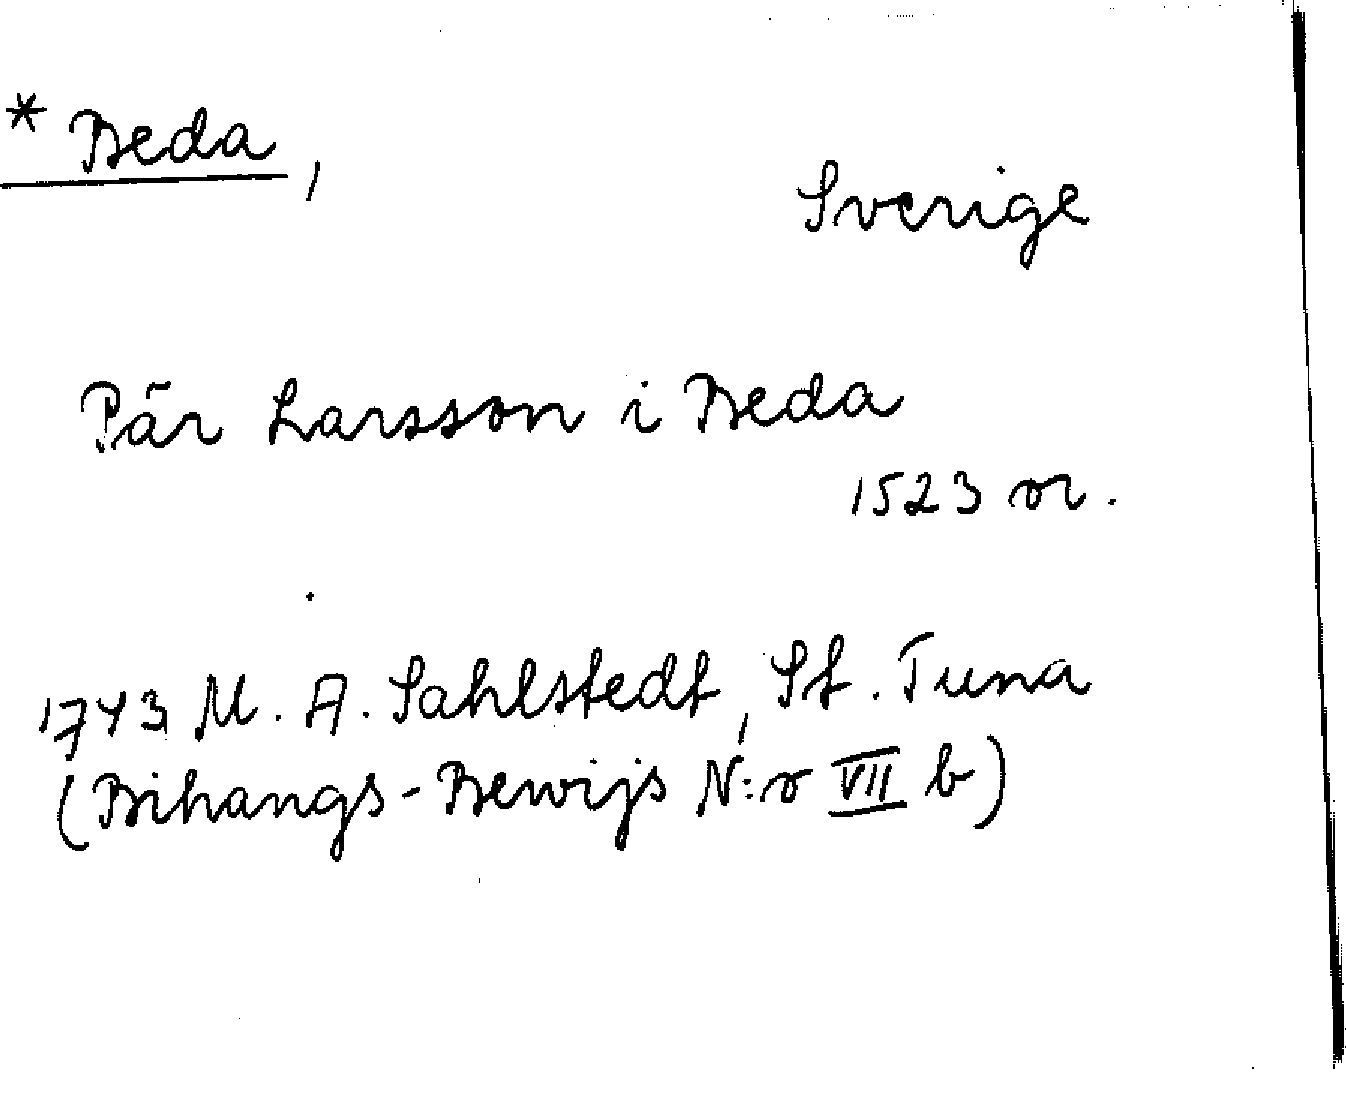 * Beda,
Sverige
Pär Larsson i Beda
1523 or.
1743 M. A. Sahlstedt, St. Tuna
(Bihangs-Bewijs N:o VII b)